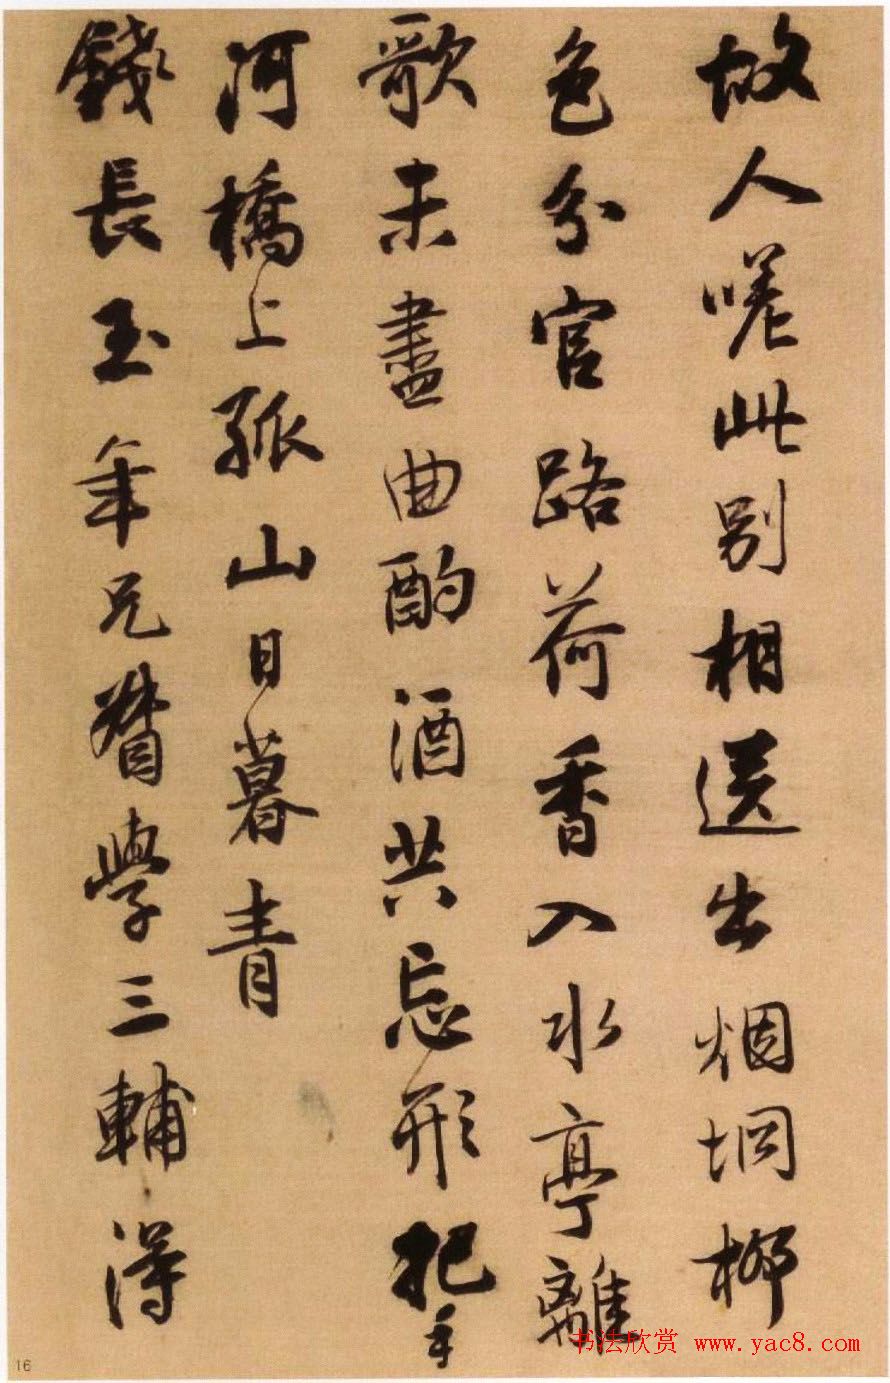 故人嗟此别相送出烟坰柳
色分官路荷香入水亭離
歌未盡曲酌酒共忘形把手
河橋上孤山日暮青
錢長玉年兄督學三輔得
书法欣赏 www.yac8.com
16